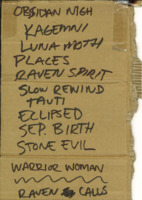 OBSIDIAN NIGH
KAGEMNI
LUNA MOTH
PLACES
RAVEN SPIRIT
SLOW REWIND
TAUTI
ECLIPSED
SEP. BIRTH
STONE EVIL
WARRIOR WOMAN
RAVEN CALLS